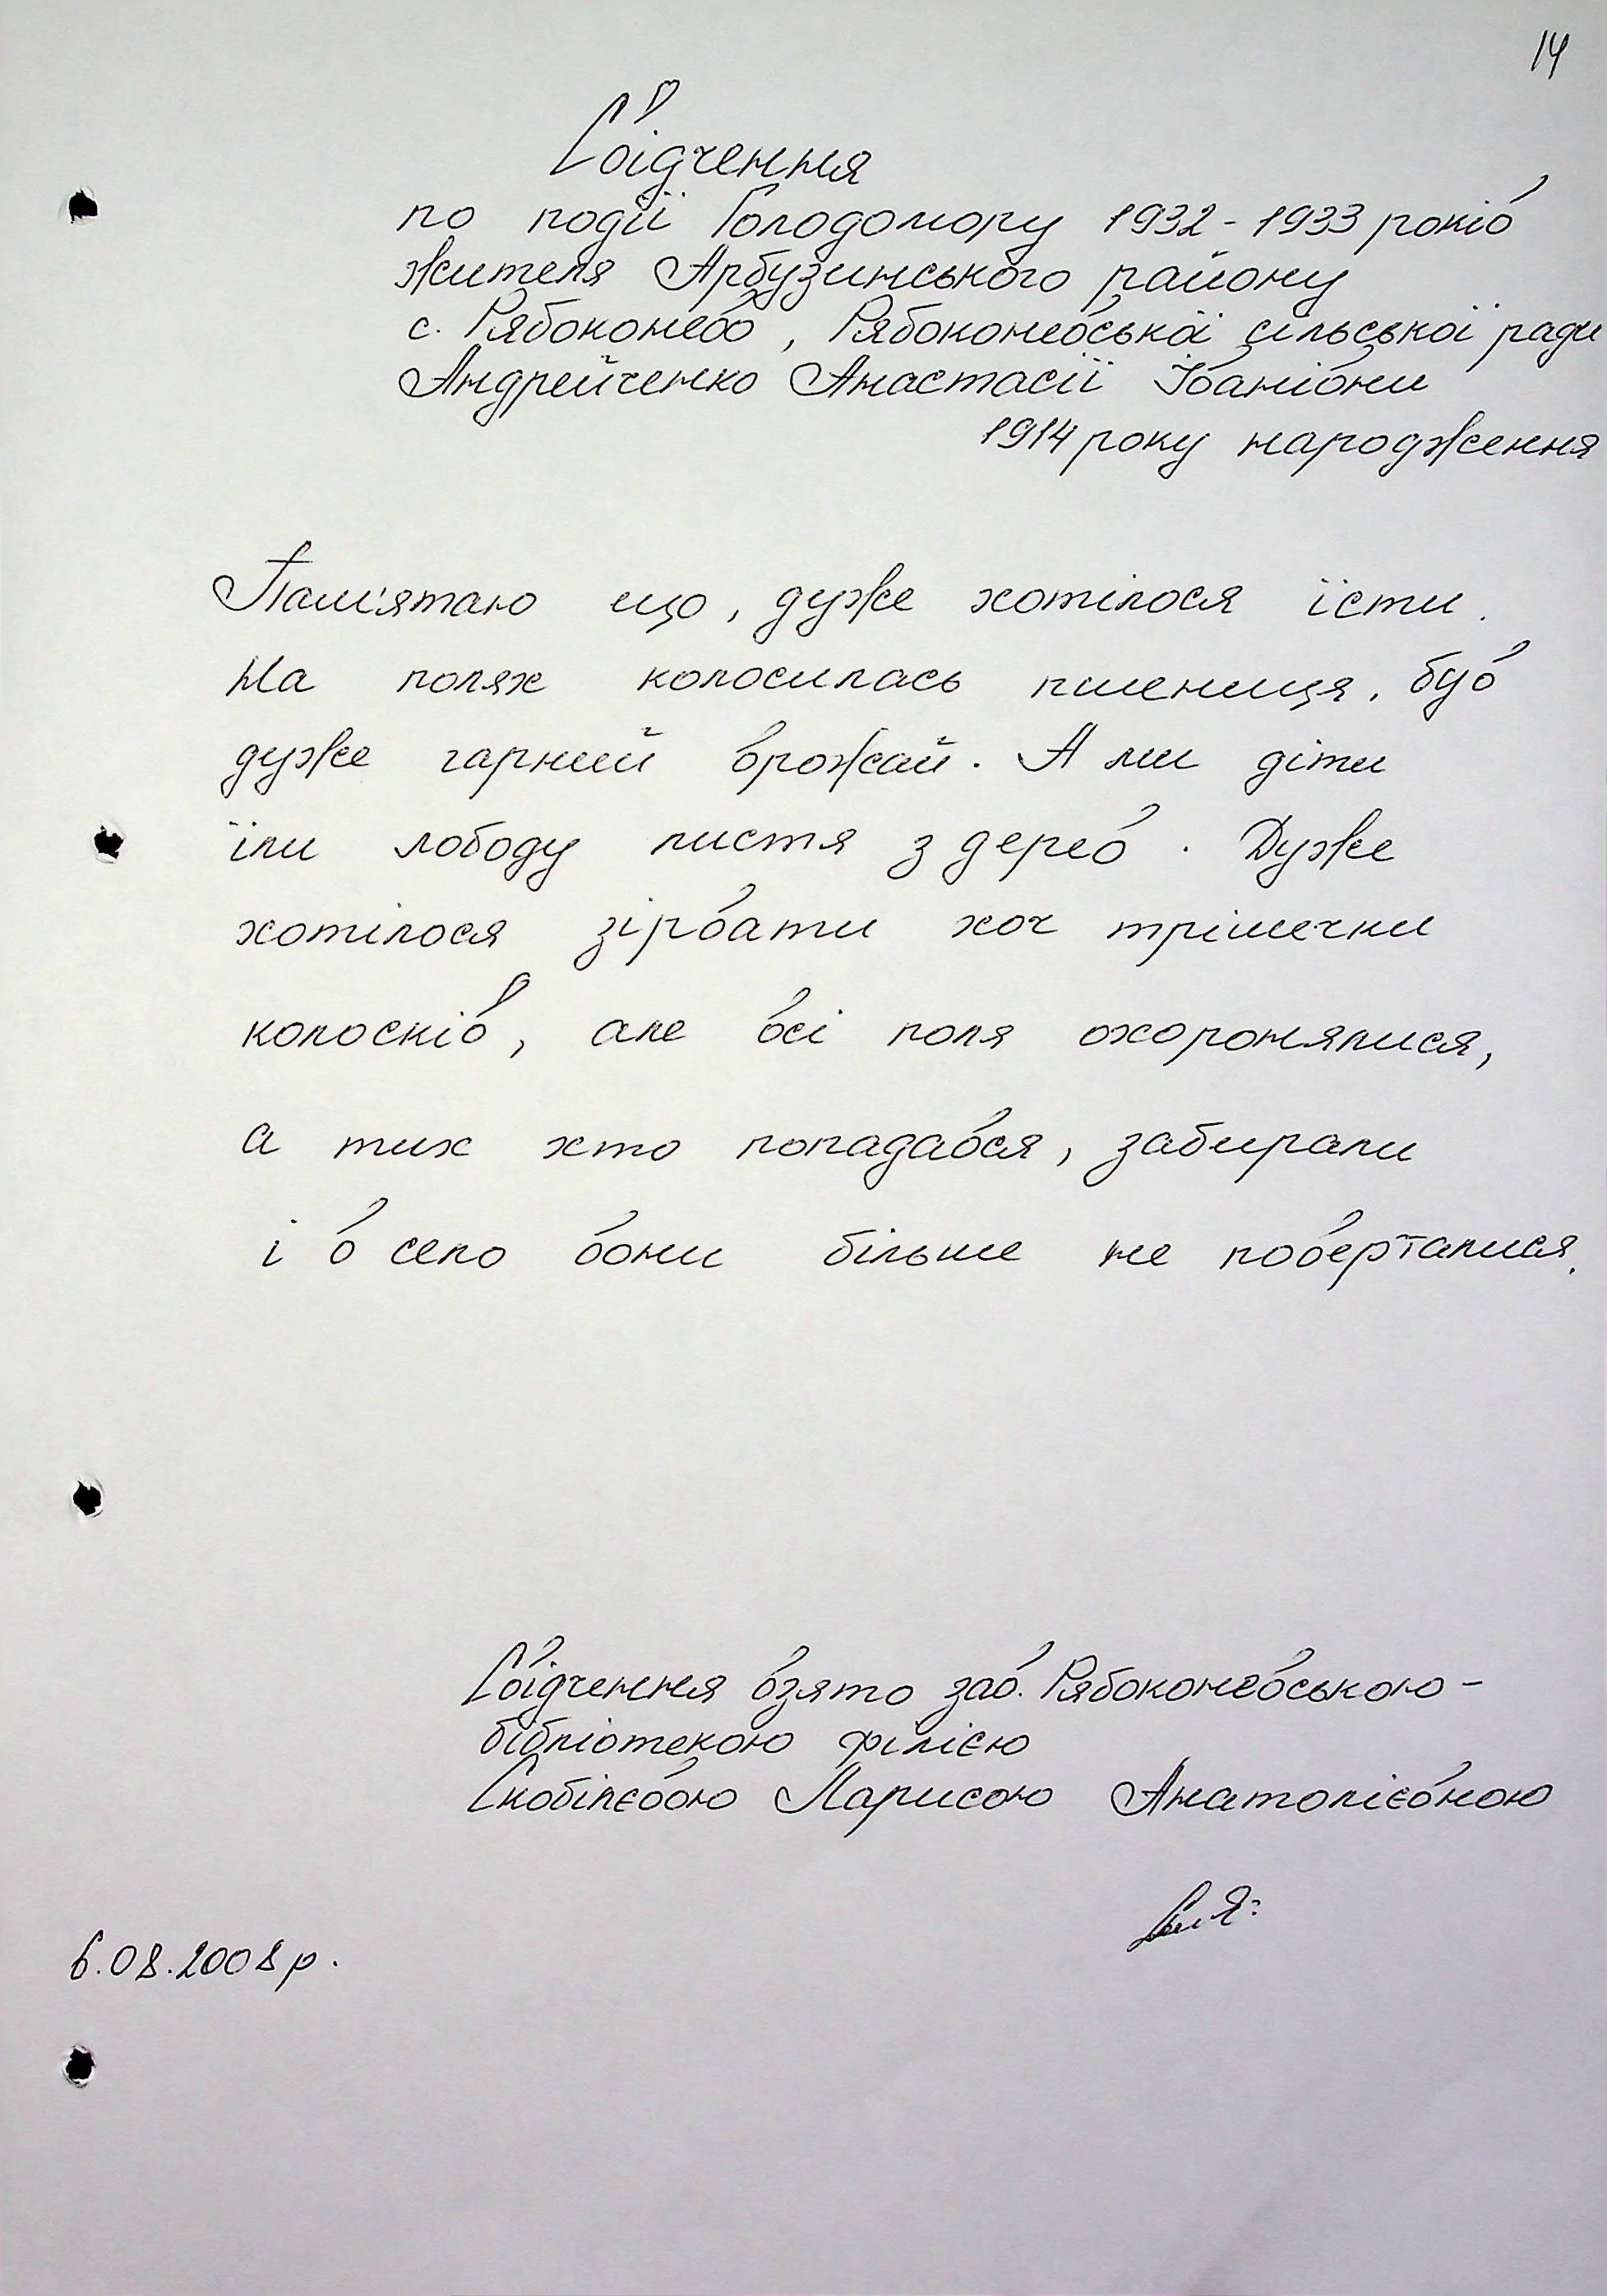 14
Свідчення
по події Голодомору 1932-1933 років
жителя Арбузинського району
с. Рябоконево, Рябоконевської сільської ради
Андрейченко Анастасії Іванівни
1914 року народження
Пам'ятаю що, дуже хотілося їсти.
На полях колосилась пшениця, був
дуже гарний врожай. А ми діти
їли лободу листя з дерев. Дуже
хотілося зірвати хоч трішечки
колосків, але всі поля охоронялися,
а тих хто попадався, забирали
і в село вони більше не поверталися.
Свідчення взято зав. Рябоконевською-
бібліотекою філією
Скобілєвою Ларисою Анатолієвною
6.08.2008р.